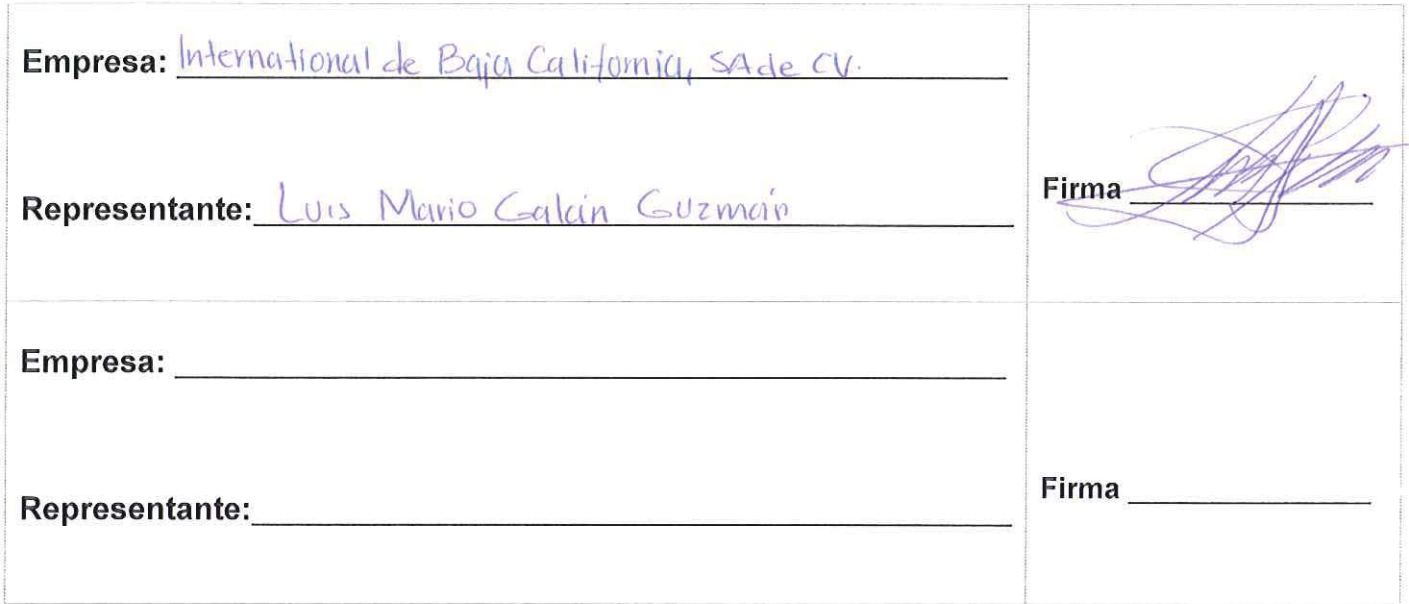 Empresa: International de Baja California, SA de CV.
Representante: Luis Mario Galán Guzmán
Firma
Empresa:
Representante:
Firma